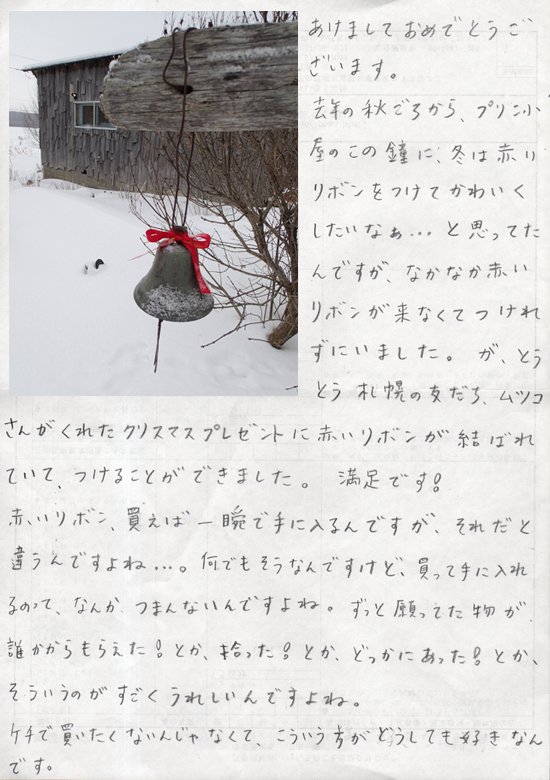 あけましておめでとうご
ざいます。
去年の秋ごろから、プリン小
屋のこの鐘に、冬は赤い
リボンをつけてかわいく
したいなぁ…と思ってた
んですが、なかなか赤い
リボンが来なくてつけれ
ずにいました。が、とう
とう札幌の友だち、ムツコ
さんがくれたクリスマスプレゼントに赤いリボンが結ばれ
ていて、つけることができました。満足です!
赤いリボン、買えば一瞬で手に入るんですが、それだと
違うんですよね…。何でもそうなんですけど、買って手に入れ
るのって、なんか、つまんないんですよね。ずっと願ってた物が、
誰かからもらえた!とか、拾った!とか、どっかにあった!とか、
そういうのがすごくうれしいんですよね。
ケチで買いたくないんじゃなくて、こういう方がどうしても好きなん
です。